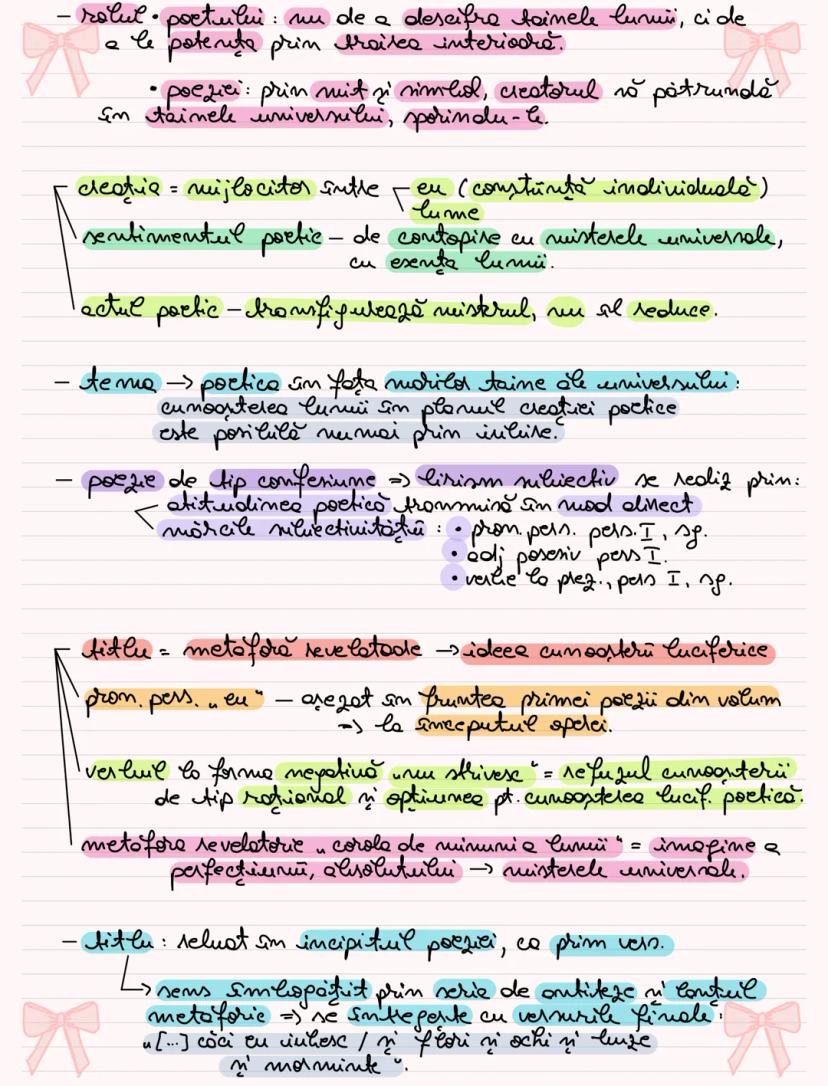 - rolul • poetului : nu de a descifra tainele lumii, ci de
a le potența prin trăirea interioară.
• poeziei: prin mit și simbol, creatorul să pătrundă
în tainele universului, sporindu-le.
creația = mijlocitor între eu (conștiință individuală)
lume
sentimentul poetic - de contopire cu misterele universale,
cu esența lumii.
actul poetic - transfigurează misterul, nu îl reduce.
- tema → poetica în fața marilor taine ale universului:
cunoașterea lumii în planul creației poetice
este posibilă numai prin iubire.
- poezie de tip confesiune => lirism subiectiv se realiz prin:
atitudinea poetică transmisă în mod direct
mărcile subiectivității : • pron. pers. pers. I, sg.
• adj posesiv pers I.
• verbe la prez., pers I, sg.
titlu = metaforă revelatoare → ideea cunoașterii luciferice
pron. pers. „eu" - așezat în fruntea primei poezii din volum
=> la începutul operei.
verbul la forma negativă „nu strivesc" = refuzul cunoașterii
de tip rațional și opțiunea pt. cunoașterea lucif. poetică.
metafora revelatorie „corola de minuni a lumii" = imagine a
perfecțiunii, absolutului → misterele universale.
- titlu : reluat în incipitul poeziei, ca prim vers.
↳ sens îmbogățit prin seria de antiteze și lanțul
metaforic => se întregește cu versurile finale:
„[...] căci eu iubesc / și flori și ochi și buze
și morminte".